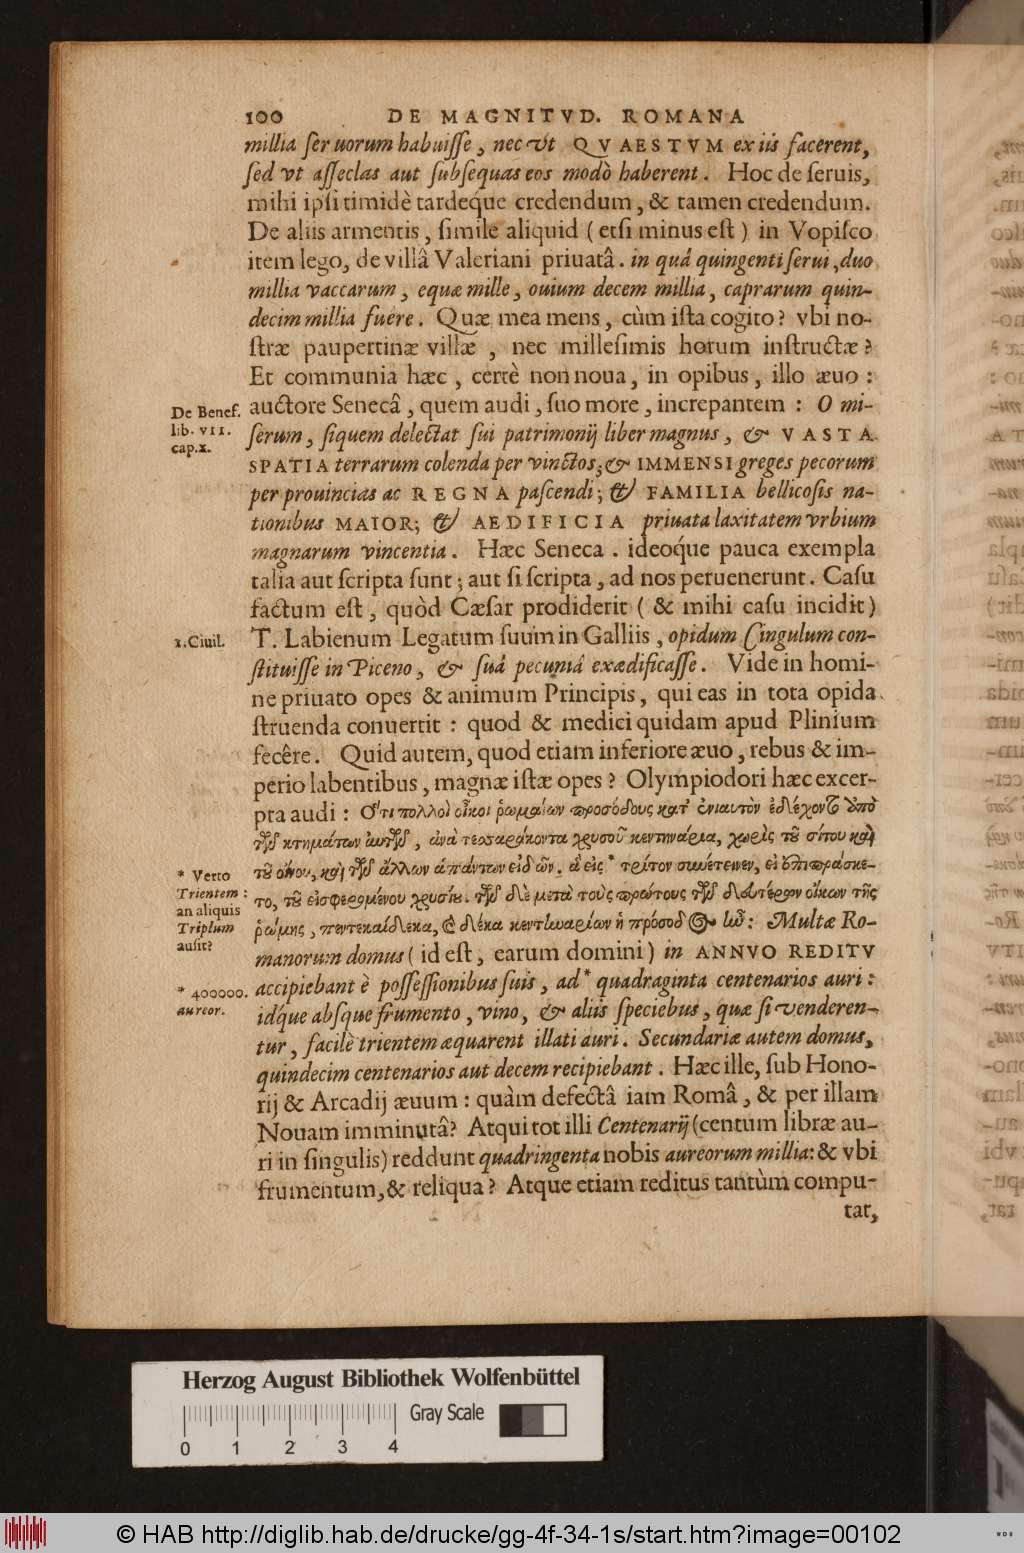 100 DE MAGNITVD. ROMANA
millia ſeruorum habuiſſe, nec vt QVAESTVM ex iis facerent,
ſed vt aſſeclas aut ſubſequas eos modò haberent. Hoc de ſeruis,
mihi ipſi timidè tardeque credendum, & tamen credendum.
De aliis armentis, ſimile aliquid (etſi minus eſt) in Vopiſco
item lego, de villâ Valeriani priuatâ. in quâ quingenti ſerui, duo
millia vaccarum, equæ mille, ouium decem millia, caprarum quin-
decim millia fuêre. Quæ mea mens, cùm iſta cogito? vbi no-
ſtræ paupertinæ villæ, nec milleſimis horum inſtructæ?
Et communia hæc, certè non noua, in opibus, illo æuo:
auctore Senecâ, quem audi, ſuo more, increpantem: O mi-
ſerum, ſiquem delectat ſui patrimonij liber magnus, & VASTA
SPATIA terrarum colenda per vinctos, & IMMENSI greges pecorum
per prouincias ac REGNA paſcendi; & FAMILIA bellicoſis na-
tionibus MAIOR; & AEDIFICIA priuata laxitatem vrbium
magnarum vincentia. Hæc Seneca. ideoq́ue pauca exempla
talia aut ſcripta ſunt; aut ſi ſcripta, ad nos peruenerunt. Caſu
factum eſt, quòd Cæſar prodiderit (& mihi caſu incidit)
T. Labienum Legatum ſuum in Galliis, opidum Cingulum con-
ſtituiſſe in Piceno, & ſuâ pecuniâ exædificaſſe. Vide in homi-
ne priuato opes & animum Principis, qui eas in tota opida
ſtruenda conuertit: quod & medici quidam apud Plinium
fecêre. Quid autem, quod etiam inferiore æuo, rebus & im-
perio labentibus, magnæ iſtæ opes? Olympiodori hæc excer-
pta audi: Ὅτι πολλοὶ οἶκοι ῥωμαίων προσόδους κατ' ἐνιαυτὸν ἐδέχοντο ἀπὸ
τῶν κτημάτων αὐτῶν, ἀνὰ τεσσαράκοντα χρυσοῦ κεντηνάρια, χωρὶς τοῦ σίτου καὶ
τοῦ οἴνου, καὶ τῶν ἄλλων ἁπάντων εἰδῶν. ἃ εἰς * τρίτον συνέτεινεν, εἰ ἐπιπράσκε-
το, τοῦ εἰσφερομένου χρυσίου. τῶν δὲ μετὰ τοὺς πρώτους τῶν δευτέρων οἴκων τῆς
ῥώμης, πεντεκαίδεκα, καὶ δέκα κεντηναρίων ἡ πρόσοδος ἦν: Multæ Ro-
manorum domus (id eſt, earum domini) in ANNVO REDITV
accipiebant è poſſeſſionibus ſuis, ad * quadraginta centenarios auri:
idq́ue abſque frumento, vino, & aliis ſpeciebus, quæ ſi venderen-
tur, facilè trientem æquarent illati auri. Secundariæ autem domus,
quindecim centenarios aut decem recipiebant. Hæc ille, ſub Hono-
rij & Arcadij æuum: quàm defectâ iam Româ, & per illam
Nouam imminutâ? Atqui tot illi Centenarij (centum libræ au-
ri in ſingulis) reddunt quadringenta nobis aureorum millia: & vbi
frumentum, & reliqua? Atque etiam reditus tantùm compu-
tat,
De Benef.
lib. VII.
cap.X.
1. Ciuil.
* Verto
Trientem:
an aliquis
Triplum
auſit?
* 400000.
aureor.
Herzog August Bibliothek Wolfenbüttel
Gray Scale
0 1 2 3 4
© HAB http://diglib.hab.de/drucke/gg-4f-34-1s/start.htm?image=00102